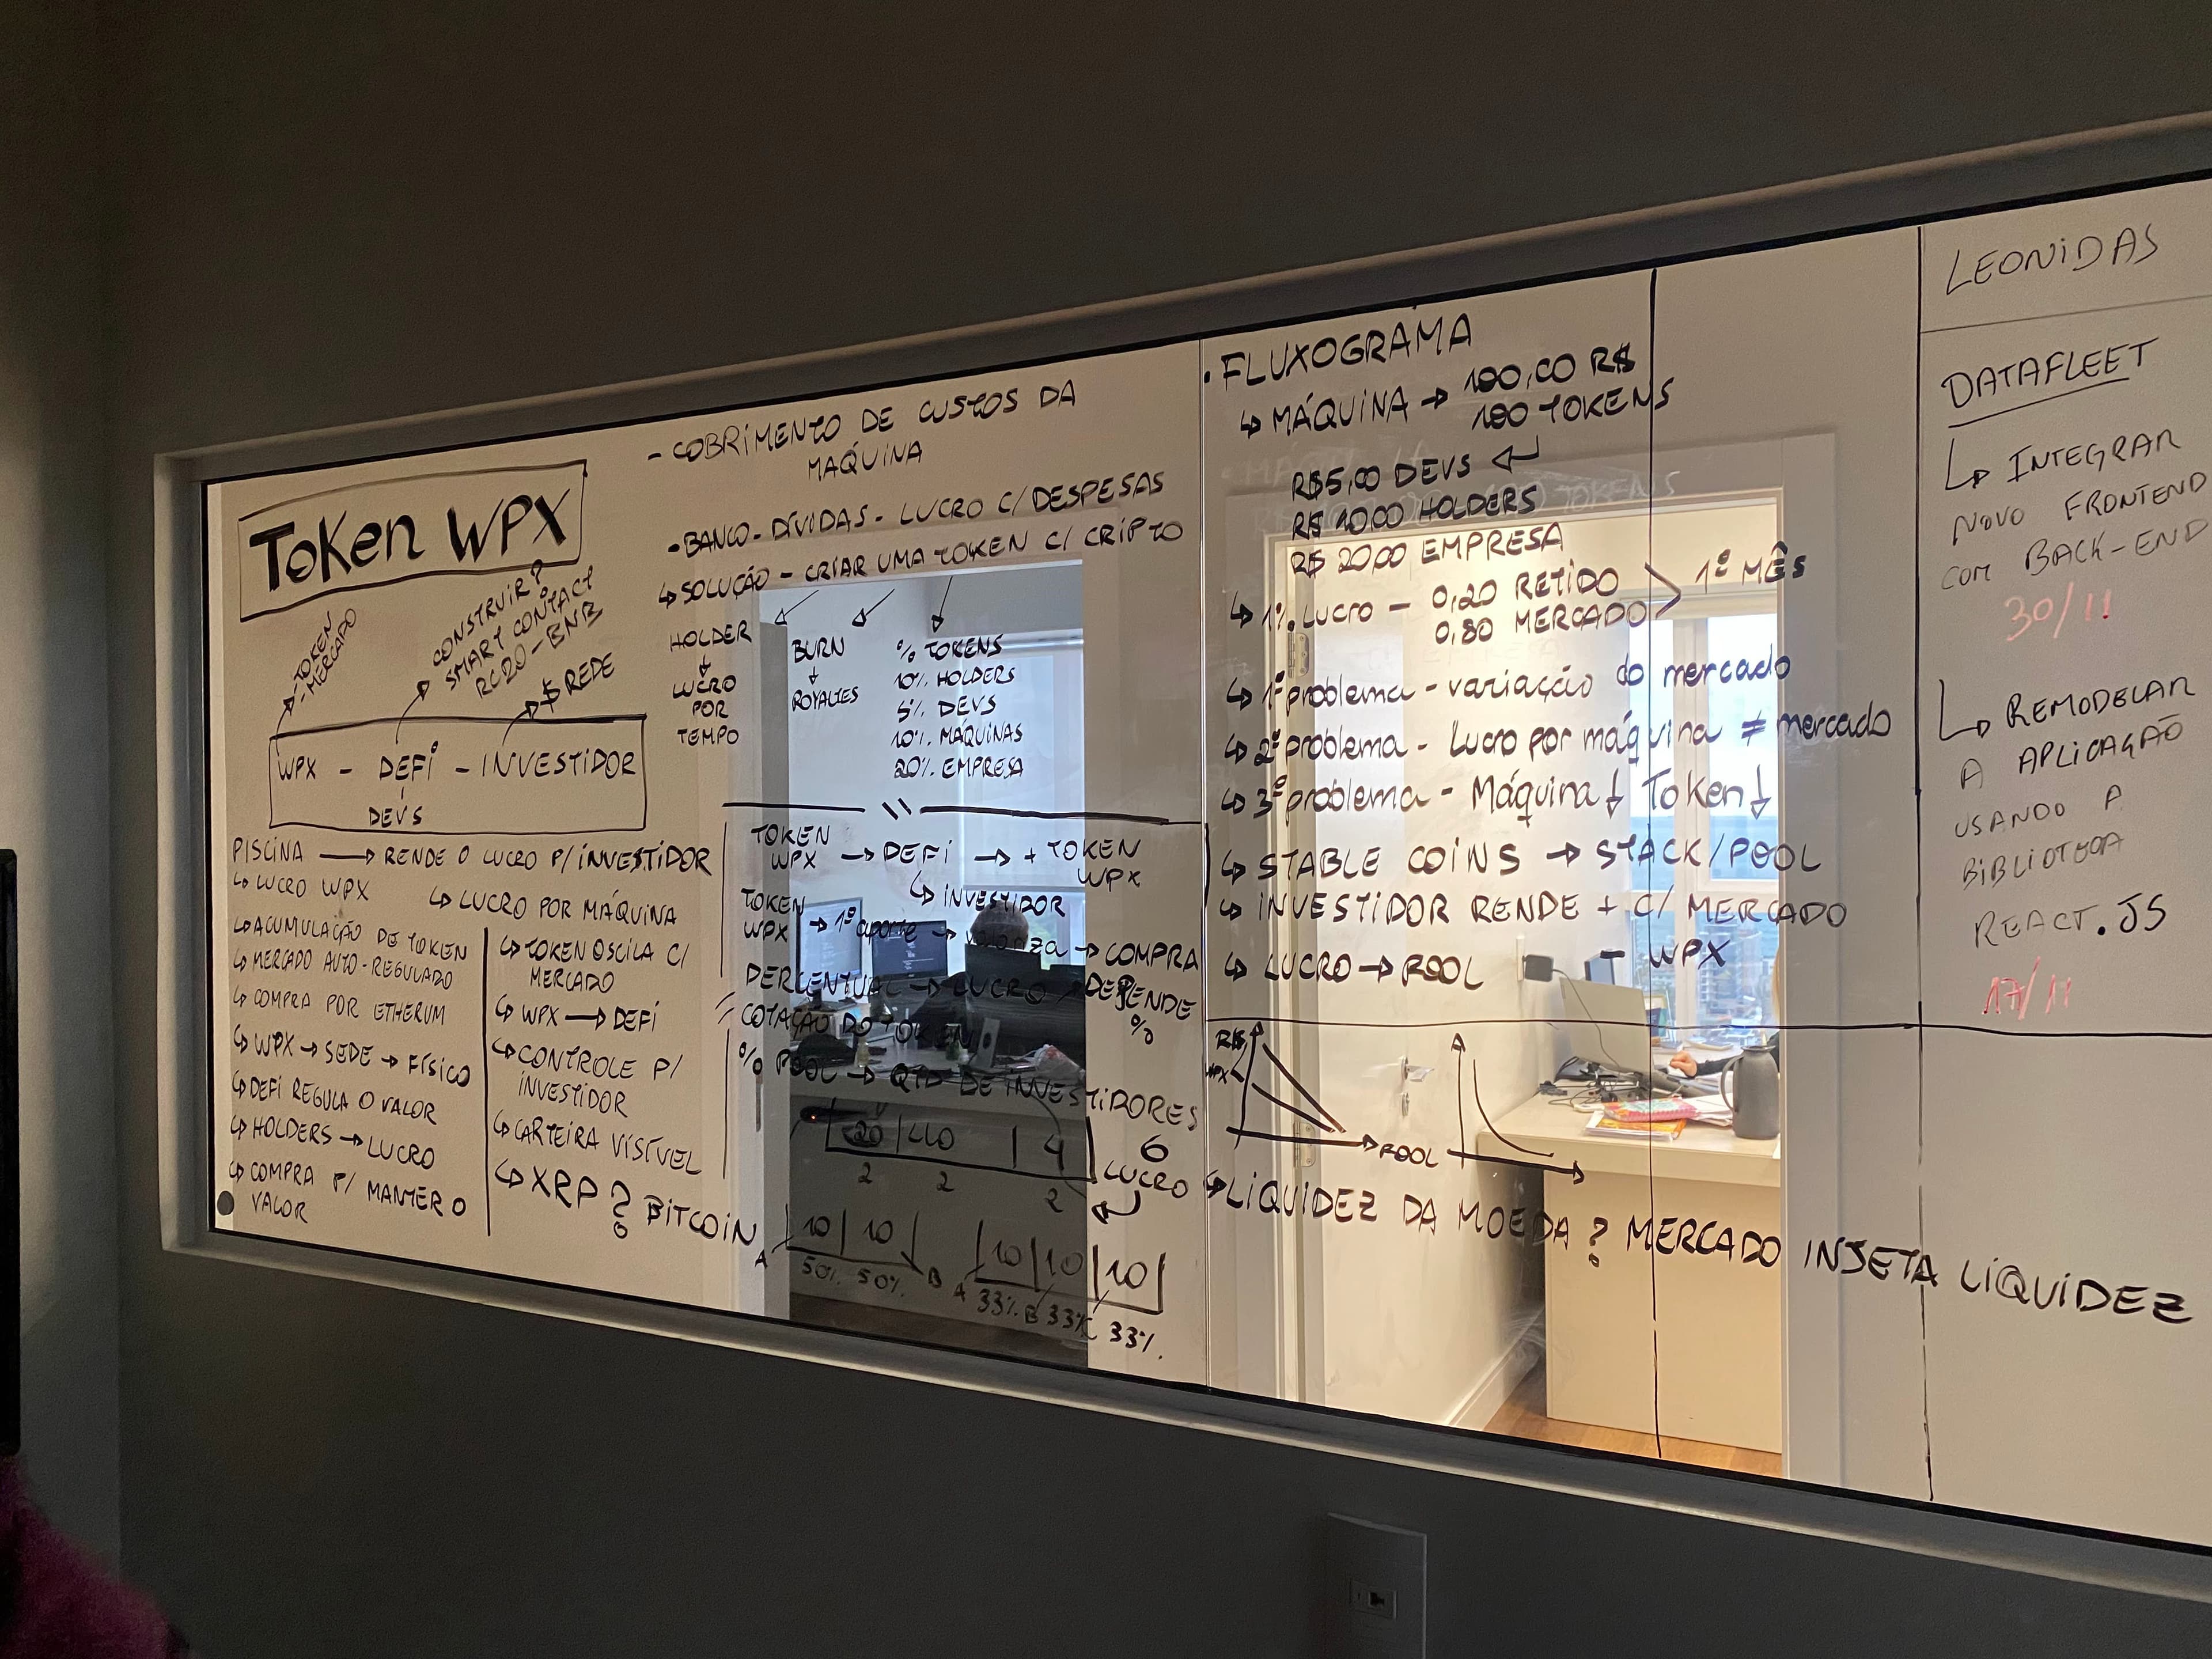 Token WPX
- TOKEN
- MERCADO
CONSTRUIR?
SMART CONTACT
RC20-BNB
$ REDE
WPX - DEFI - INVESTIDOR
DEVS
PISCINA → RENDE O LUCRO P/ INVESTIDOR
↳ LUCRO WPX
↳ LUCRO POR MÁQUINA
↳ ACUMULAÇÃO DE TOKEN
↳ MERCADO AUTO-REGULADO
↳ COMPRA POR ETHERUM
↳ WPX → SEDE → FÍSICO
↳ DEFI REGULA O VALOR
↳ HOLDERS → LUCRO
↳ COMPRA P/ MANTER O
VALOR
↳ TOKEN OSCILA C/
MERCADO
↳ WPX → DEFI
↳ CONTROLE P/
INVESTIDOR
↳ CARTEIRA VISÍVEL
↳ XRP ? BITCOIN
- COBRIMENTO DE CUSTOS DA
MÁQUINA
- BANCO - DÍVIDAS - LUCRO C/ DESPESAS
↳ SOLUÇÃO - CRIAR UMA TOKEN C/ CRIPTO
HOLDER
↓
LUCRO
POR
TEMPO
BURN
↓
ROYALTIES
% TOKENS
10% HOLDERS
5% DEVS
10% MÁQUINAS
20% EMPRESA
TOKEN
WPX → DEFI → + TOKEN
WPX
↳ INVESTIDOR
TOKEN
WPX → 1º aporte → → COMPRA
PERCENTUAL → LUCRO
DEPENDE
%
COTAÇÃO DO TOKEN
% POOL → QTD DE INVESTIDORES
20 | 40 | 4
2 2 2
6
LUCRO
A 10 | 10 B
50% 50%
A 10 | 10 | 10
33% B 33% C 33%
• FLUXOGRAMA
↳ MÁQUINA → 100,00 R$
100 TOKENS
R$ 5,00 DEVS
R$ 10,00 HOLDERS
R$ 20,00 EMPRESA
↳ 1% LUCRO - 0,20 RETIDO
0,80 MERCADO > 1º MÊS
↳ 1º problema - variação do mercado
↳ 2º problema - Lucro por máquina ≠ mercado
↳ 3º problema - Máquina ↓ Token ↓
↳ STABLE COINS → STACK/POOL
↳ INVESTIDOR RENDE + C/ MERCADO
- WPX
↳ LUCRO → POOL
R$
WPX
POOL
↳ LIQUIDEZ DA MOEDA ? MERCADO INJETA LIQUIDEZ
LEONIDAS
DATAFLEET
↳ INTEGRAR
NOVO FRONTEND
COM BACK-END
30/11
↳ REMODELAR
A APLICAÇÃO
USANDO A
BIBLIOTECA
REACT.JS
17/11